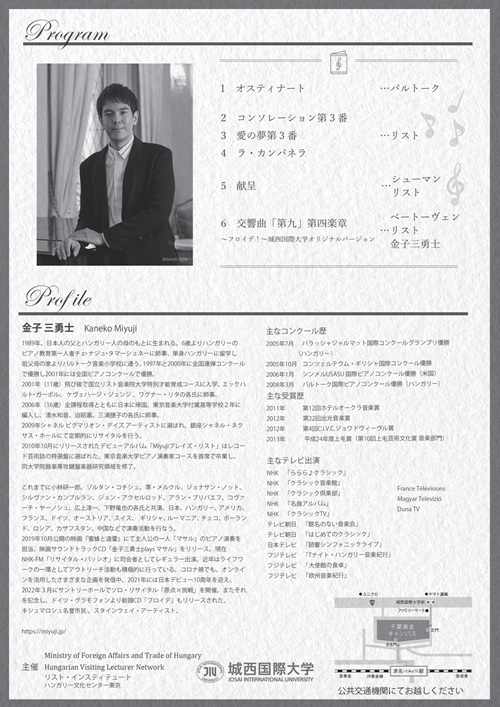 Program
1 オスティナート …バルトーク
2 コンソレーション第3番
3 愛の夢第3番 …リスト
4 ラ・カンパネラ
5 献呈 …シューマン
リスト
6 交響曲「第九」第四楽章 ベートーヴェン
…リスト
～フロイデ!～城西国際大学オリジナルバージョン
金子三勇士
Profile
金子 三勇士 Kaneko Miyuji
1989年、日本人の父とハンガリー人の母のもとに生まれる。6歳よりハンガリーの
ピアノ教育第一人者チェ・ナジュ・タマーシュネーに師事、単身ハンガリーに留学し
祖父母の家よりバルトーク音楽小学校に通う。1997年と2000年に全国連弾コンクール
で優勝し2001年には全国ピアノコンクールで優勝。
2001年（11歳）飛び級で国立リスト音楽院大学特別才能育成コースに入学。エックハ
ルト・ガーボル、ケヴェハージ・ジュンジ、ワグナー・リタの各氏に師事。
2006年（16歳）全課程取得とともに日本に帰国、東京音楽大学付属高等学校2年に
編入し、清水和音、迫昭嘉、三浦捷子の各氏に師事。
2009年シャネル ピグマリオン・デイズ アーティストに選ばれ、銀座シャネル・ネク
サス・ホールにて定期的にリサイタルを行う。
2010年10月にリリースされたデビューアルバム「Miyujiプレイズ・リスト」はレコー
ド芸術誌の特選盤に選ばれた。東京音楽大学ピアノ演奏家コースを首席で卒業し、
同大学院器楽専攻鍵盤楽器研究領域を修了。
これまでに小林研一郎、ゾルタン・コチシュ、準・メルクル、ジョナサン・ノット、
シルヴァン・カンブルラン、ジョン・アクセルロッド、アラン・ブリバエフ、コヴァ
ーチ・ヤーノシュ、広上淳一、下野竜也の各氏と共演。日本、ハンガリー、アメリカ、
フランス、ドイツ、オーストリア、スイス、ギリシャ、ルーマニア、チェコ、ポーラン
ド、ロシア、カザフスタン、中国などで演奏活動を行う。
2019年10月公開の映画「蜜蜂と遠雷」にて主人公の一人「マサル」のピアノ演奏を
担当。映画サウンドトラックCD「金子三勇士plays マサル」をリリース。現在
NHK-FM「リサイタル・パッシオ」に司会者としてレギュラー出演。近年はライフワ
ークの一環としてアウトリーチ活動も積極的に行っている。コロナ禍でも、オンライ
ンを活用したさまざまな企画を発信中。2021年には日本デビュー10周年を迎え、
2022年3月にサントリーホールでソロ・リサイタル「原点×挑戦」を開催。またそれ
を記念し、ドイツ・グラモフォンより新譜CD「フロイデ」もリリースされた。
キシュマロシュ名誉市民。スタインウェイ・アーティスト。
https://miyuji.jp/
主なコンクール歴
2005年7月 バラッシャジャルマット国際コンクールグランプリ優勝
（ハンガリー）
2005年10月 コンツェルテウム・ギリシャ国際コンクール優勝
2006年1月 シンメルUSASU国際ピアノコンクール優勝（米国）
2008年3月 バルトーク国際ピアノコンクール優勝（ハンガリー）
主な受賞歴
2011年 第12回ホテルオークラ音楽賞
2012年 第22回出光音楽賞
2012年 第4回C.I.V.C.ジョワドヴィーヴル賞
2013年 平成24年度上毛賞（第10回上毛芸術文化賞 音楽部門）
主なテレビ出演
NHK 「ららら♪クラシック」
NHK 「クラシック音楽館」
NHK 「クラシック倶楽部」
NHK 「名曲アルバム」
NHK 「クラシックTV」
テレビ朝日 「題名のない音楽会」
テレビ朝日 「はじめてのクラシック」
日本テレビ 「読響シンフォニックライブ」
フジテレビ 「Tナイト・ハンガリー音楽紀行」
フジテレビ 「大使館の食卓」
フジテレビ 「欧州音楽紀行」
France Télévisions
Magyar Televízió
Duna TV
主催
Ministry of Foreign Affairs and Trade of Hungary
Hungarian Visiting Lecturer Network
リスト・インスティテュート
ハンガリー文化センター東京
城西国際大学
JOSAI INTERNATIONAL UNIVERSITY
ユニクロ
ヤマト運輸
城西国際大学前
ファミリーマート
千葉東金
キャンパス
正門
求名駅
公共交通機関にてお越しください